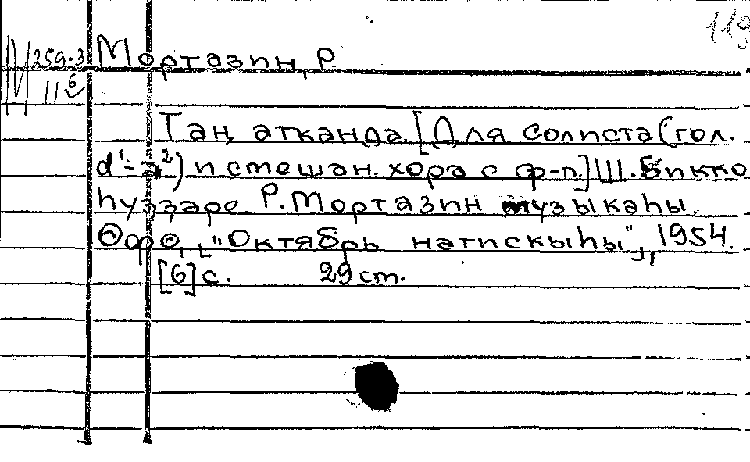 119
М 259-3 Мортазин, Р.
11
Таң атканда. [Для солиста (гол.
d¹-a²) и смешан. хора с ф-п.] Ш. Бикко
һүҙҙәре. Р. Мортазин музыкаһы.
Өфө, [„Октябрь натискыһы"], 1954.
[6] с. 29 ст.